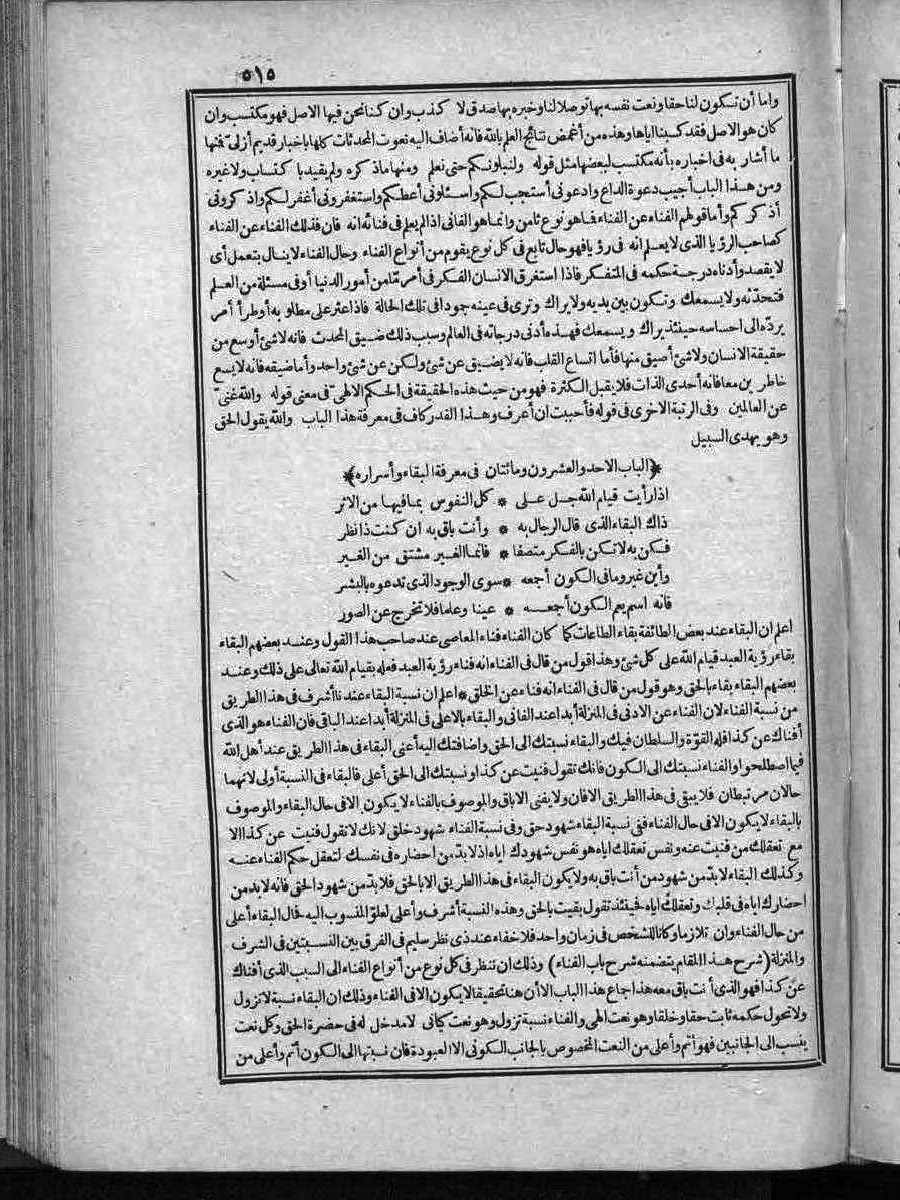 ٥١٥
واما أن تكون لنا حقا ونعت نفسه بها توصلا لنا وخبره بها صدق لا كذب وان كنا نحن فيها الاصل فهو مكتسب وان
كان هو الاصل فقد كسبنا اياها وهذه من أغمض نتائج العلم بالله فانه أضاف اليه نعوت المحدثات كلها باخبار قديم أزلي فمنها
ما أشار به في اخباره بأنه مكتسب لبعضها مثل قوله ولنبلونكم حتى نعلم ومنها ما ذكره ولم يقيد با كتساب ولا غيره
ومن هذا الباب أجيب دعوة الداع وادعوني أستجب لكم واسئلوني أعطكم واستغفروني أغفر لكم واذ كروني
أذ كركم وأما قولهم الفناء عن الفناء فما هو نوع ثامن وانما هو الفاني اذا لم يعلم في فنائه انه فان فذلك الفناء عن الفناء
كصاحب الرؤيا الذي لا يعلم انه في رؤيا فهو حال تابع في كل نوع يقوم من أنواع الفناء وحال الفناء لا ينال بتعمل أي
لا يقصد وأدناه درجة حكمه في المتفكر فاذا استغرق الانسان الفكر في أمر ما من أمور الدنيا أو في مسئلة من العلم
فتحدثه ولا يسمعك وتكون بين يديه ولا يراك وترى في عينه جودا في تلك الحالة فاذا عثر على مطلوبه أو طرأ أمر
يرده الى احساسه حينئذ يراك ويسمعك فهذه أدنى درجاته في العالم وسبب ذلك ضيق المحدث فانه لا شئ أوسع من
حقيقة الانسان ولا شئ أضيق منها فأما اتساع القلب فانه لا يضيق عن شئ ولكن عن شئ واحد وأما ضيقه فانه لا يسع
خاطرين معا فانه أحدي الذات فلا يقبل الكثرة فهو من حيث هذه الحقيقة في الحكم الالهي في معنى قوله والله غني
عن العالمين وفي الرتبة الاخرى في قوله فأحببت ان أعرف وهذا القدر كاف في معرفة هذا الباب والله يقول الحق
وهو يهدي السبيل
﴿الباب الاحد والعشرون ومائتان في معرفة البقاء وأسراره﴾
اذا رأيت قيام الله جل على * كل النفوس بما فيها من الاثر
ذاك البقاء الذي قال الرجال به * وأنت باق به ان كنت ذا نظر
فكن به لا تكن بالفكر متصفا * فانما الغير مشتق من الغير
وأين غير وما في الكون أجمعه * سوى الوجود الذي تدعوه بالبشر
فانه اسم يعم الكون أجمعه * عينا وعلما فلا تخرج عن الصور
اعلم ان البقاء عند بعض الطائفة بقاء الطاعات كما كان الفناء فناء المعاصي عند صاحب هذا القول وعند بعضهم البقاء
بقاء رؤية العبد قيام الله على كل شئ وهذا قول من قال في الفناء انه فناء رؤية العبد فعله بقيام الله تعالى على ذلك وعند
بعضهم البقاء بقاء بالحق وهو قول من قال في الفناء انه فناء عن الخلق * اعلم ان نسبة البقاء عندنا أشرف في هذا الطريق
من نسبة الفناء لان الفناء عن الادنى في المنزلة أبدا عند الفاني والبقاء بالاعلى في المنزلة أبدا عند الباقي فان الفناء هو الذي
أفناك عن كذا فله القوة والسلطان فيك والبقاء نسبتك الى الحق واضافتك اليه أعني البقاء في هذا الطريق عند أهل الله
فيما اصطلحوا والفناء نسبتك الى الكون فانك تقول فنيت عن كذا ونسبتك الى الحق أعلى فالبقاء في النسبة أولى لانهما
حالان مرتبطان فلا يبقى في هذا الطريق الا فان ولا يفنى الا باق والموصوف بالفناء لا يكون الا في حال البقاء والموصوف
بالبقاء لا يكون الا في حال الفناء ففي نسبة البقاء شهود حق وفي نسبة الفناء شهود خلق لانك لا تقول فنيت عن كذا الا
مع تعقلك من فنيت عنه ونفس تعقلك اياه هو نفس شهودك اياه اذ لا بد من احضاره في نفسك لتعقل حكم الفناء عنه
وكذلك البقاء لا بد من شهود من أنت باق به ولا يكون البقاء في هذا الطريق الا بالحق فلا بد من شهود الحق فانه لا بد من
احضارك اياه في قلبك وتعقلك اياه فحينئذ تقول بقيت بالحق وهذه النسبة أشرف وأعلى لعلو المنسوب اليه فحال البقاء أعلى
من حال الفناء وان تلازما وكانا للشخص في زمان واحد فلا خفاء عند ذي نظر سليم في الفرق بين النسبتين في الشرف
والمنزلة (شرح هذا المقام يتضمنه شرح باب الفناء) وذلك ان تنظر في كل نوع من أنواع الفناء الى السبب الذي أفناك
عن كذا فهو الذي أنت باق معه هذا جاع هذا الباب الا أن هنا تحقيقا لا يكون الا في الفناء وذلك ان البقاء نسبة لا تزول
ولا تحول حكمه ثابت حقا وخلقا وهو نعت الهي والفناء نسبة تزول وهو نعت كياني لا مدخل له في حضرة الحق وكل نعت
ينسب الى الجانبين فهو أتم وأعلى من النعت المخصوص بالجانب الكوني الا العبودة فان نسبتها الى الكون أتم وأعلى من